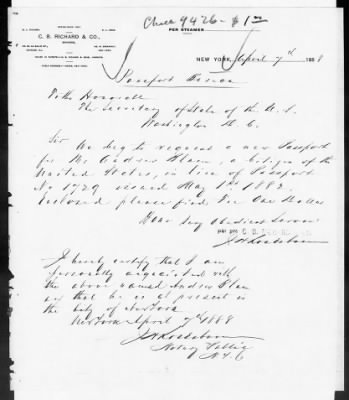 Check 9426 - $1 00
PER STEAMER
C. B. RICHARD & CO.,
NEW YORK, April 7th 1888
Passport Bureau
To the Honorable
The Secretary of State of the U. S.
Washington D. C.
Sir
We beg to request a new Passport
for Mr Andrew, a citizen of the
United States, in lieu of Passport
No 1729 issued May 1st 1882.
Enclosed please find Fee One Dollar
Your very obedient Servant
I hereby certify that I am
personally acquainted with
the above named Andrew
and that he is at present in
the City of New York
New York April 7th 1888
Notary Public
N.Y.C